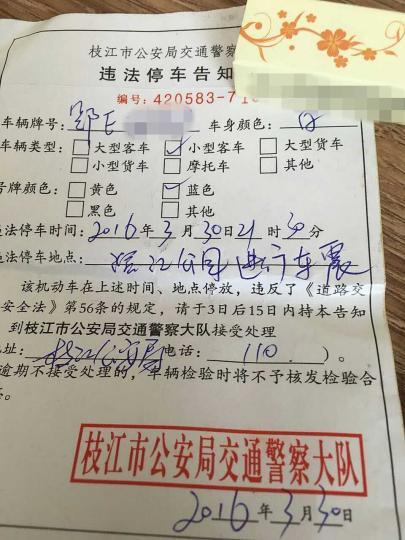 枝江市公安局交通警察
违法停车告知
编号：420583-71
车辆牌号：鄂E 车身颜色：白
车辆类型：□大型客车 ☑小型客车 □大型货车
□小型货车 □摩托车 □其他
号牌颜色：□黄色 ☑蓝色
□黑色 □其他
违法停车时间：2016年3月30日21时30分
违法停车地点：沿江公园进行车震
该机动车在上述时间、地点停放，违反了《道路交
安全法》第56条的规定，请于3日后15日内持本告知
到枝江市公安局交通警察大队接受处理
地址：枝江公安局 电话：110）。
逾期不接受处理的，车辆检验时将不予核发检验合
枝江市公安局交通警察大队
2016年3月30